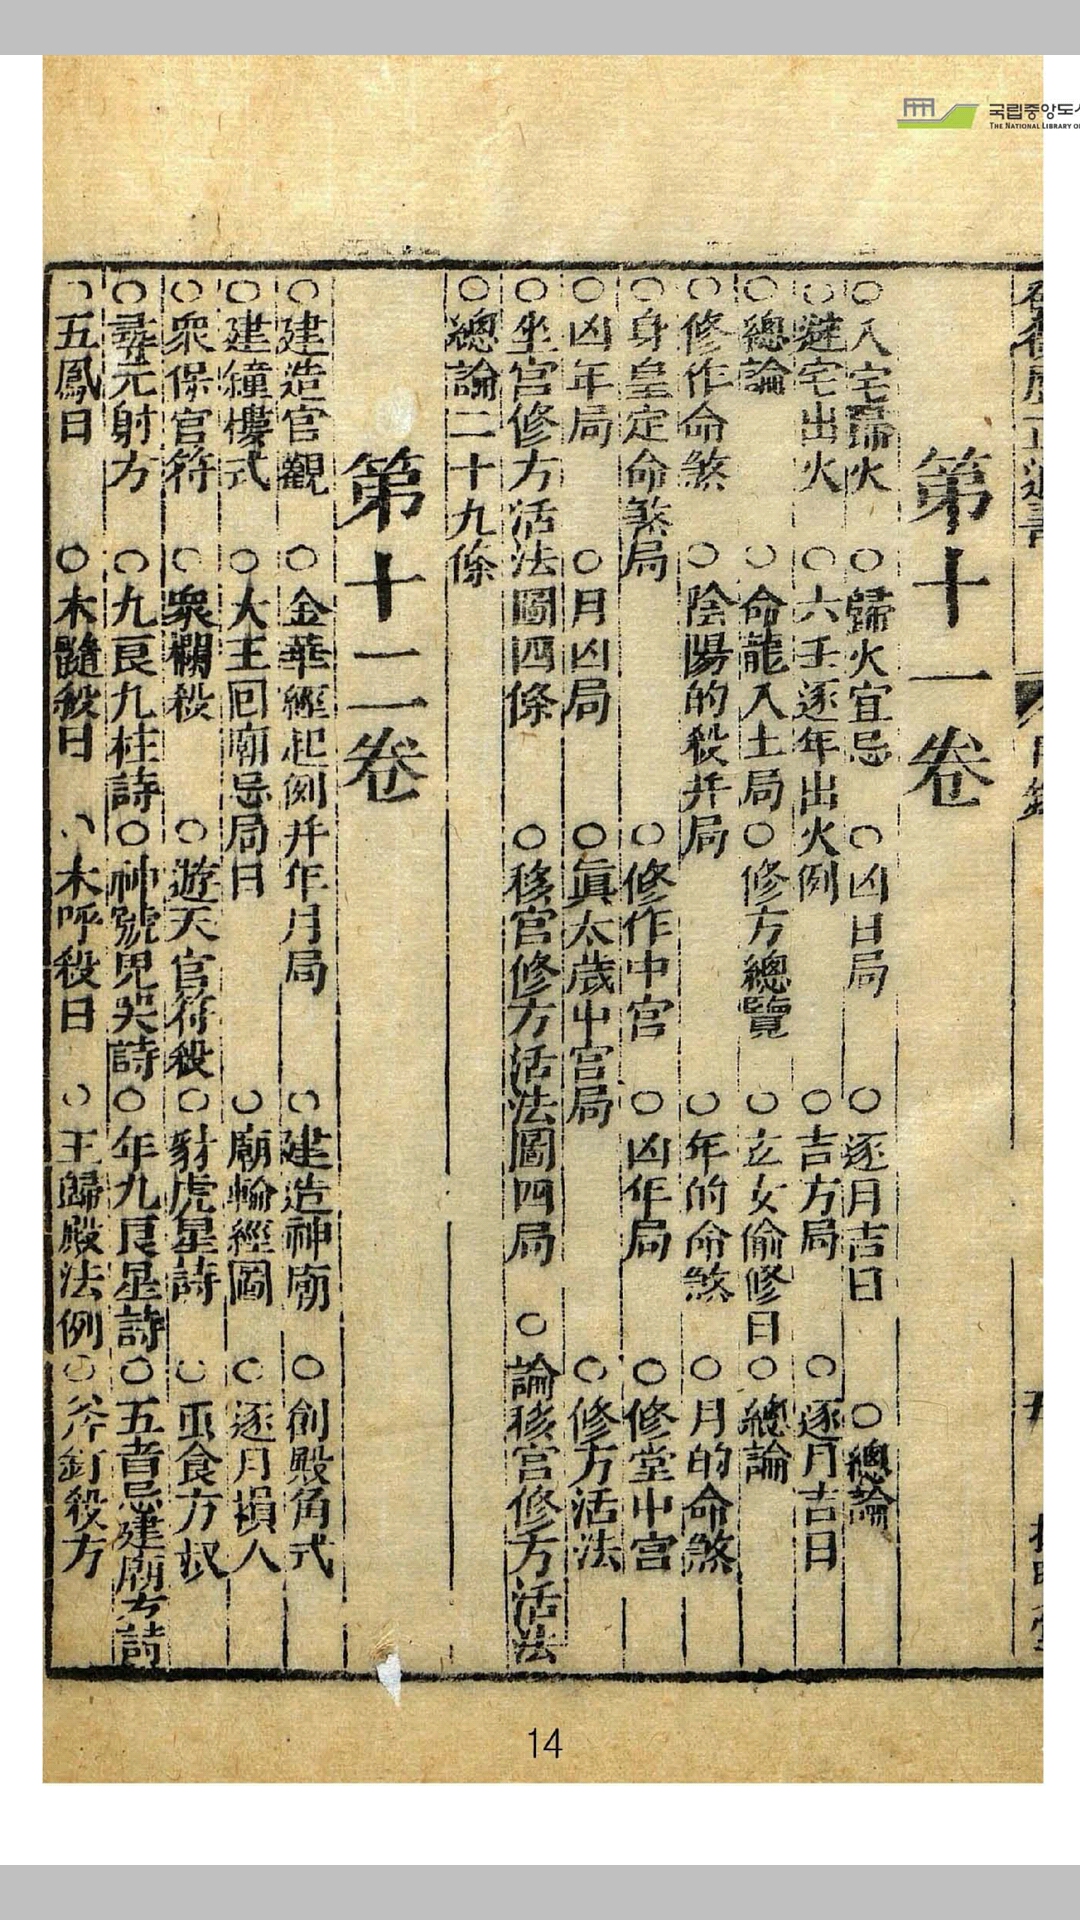 국립중앙도서
THE NATIONAL LIBRARY OF
第十一卷
○入宅歸火 ○歸火宜忌 ○凶日局 ○逐月吉日 ○總論
○避宅出火 ○六壬逐年出火例 ○吉方局 ○逐月吉日
○總論 ○命龍入土局 ○修方總覽 ○玄女偷修日 ○總論
○修作命煞 ○陰陽的殺并局 ○年的命煞 ○月的命煞
○身皇定命煞局 ○修作中宮 ○凶年局 ○修堂中宮
○凶年局 ○月凶局 ○眞太歲中宮局 ○修方活法
○坐宮修方活法圖四條 ○移宮修方活法圖四局 ○論移宮修方活法
○總論二十九條
第十二卷
○建造官觀 ○金華經起例并年月局 ○建造神廟 ○創殿角式
○建鐘樓式 ○大王回廟忌局日 ○廟輪經圖 ○逐月損人
○衆保官符 ○衆欄殺 ○遊天官符殺 ○豺虎星詩 ○血食方
○尋元射方 ○九良九柱詩 ○神號鬼哭詩 ○年九良星詩 ○五音忌建廟方詩
○五鳳日 ○木隨殺日 ○木呼殺日 ○王歸殿法例 ○斧釘殺方
14